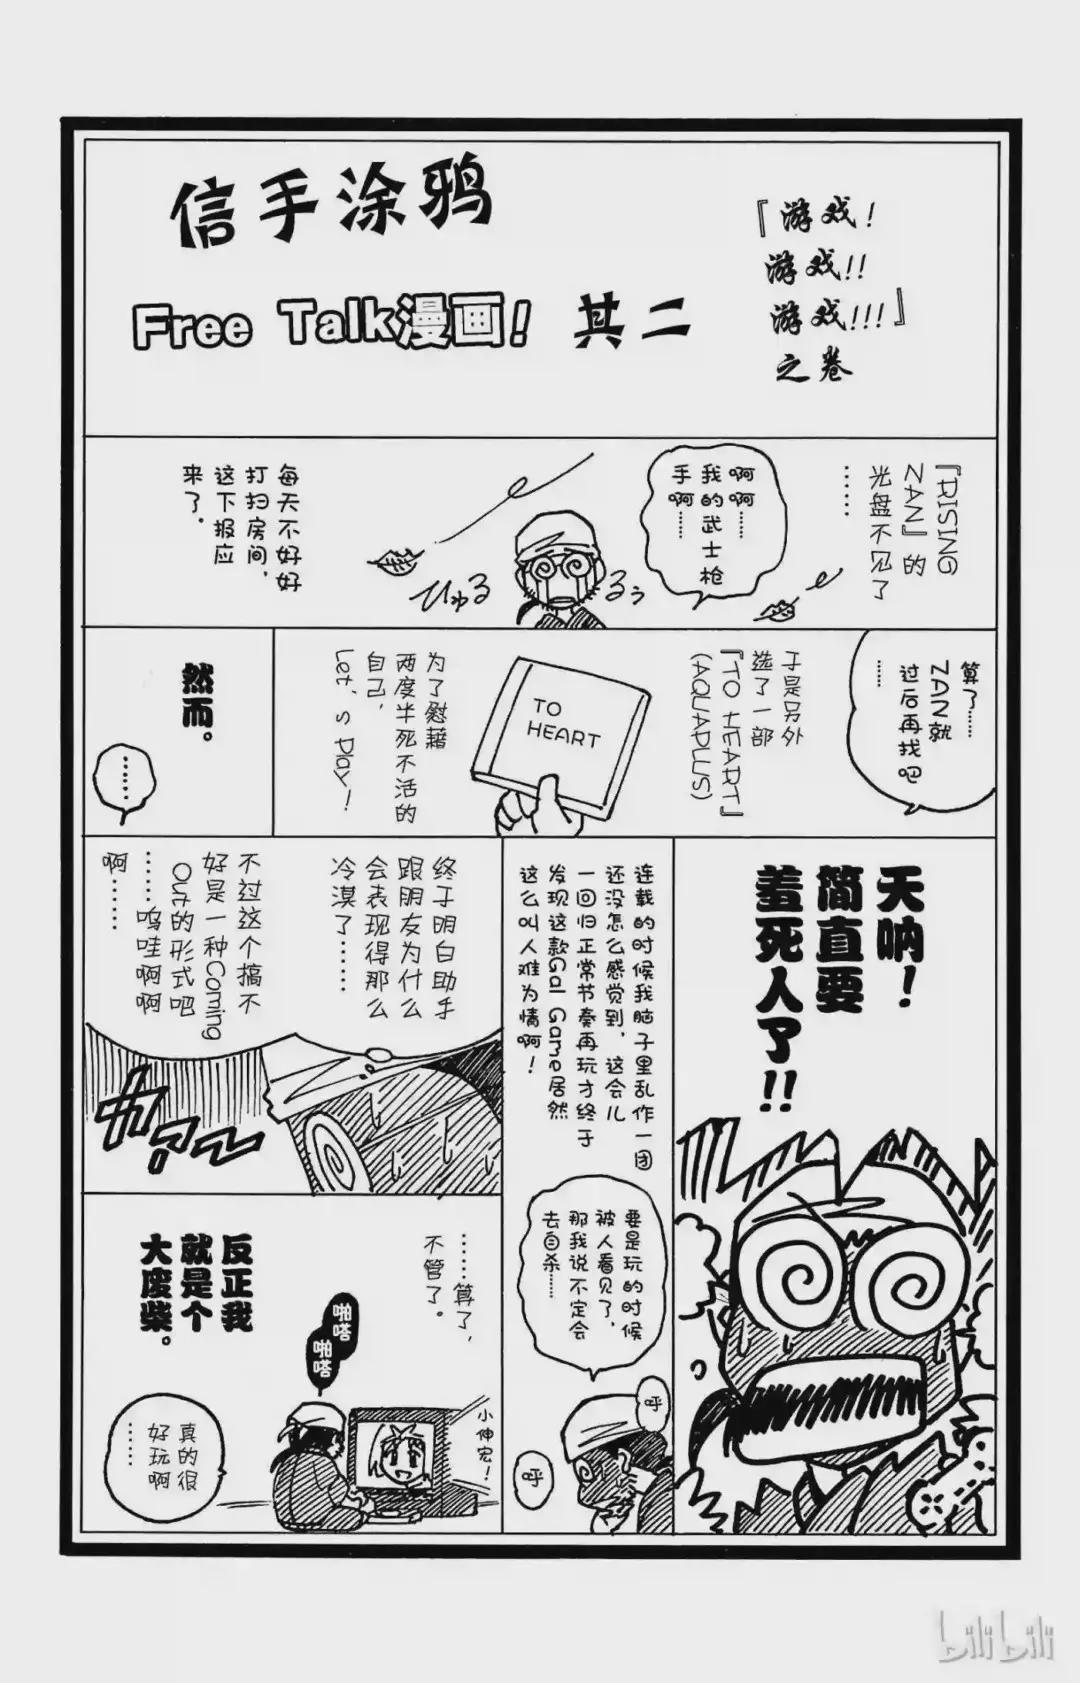 信手涂鸦
Free Talk漫画！ 其二
『游戏！
游戏！！
游戏！！！』
之卷
『RISING
ZAN』的
光盘不见了
……
啊啊……
我的武士枪
手啊……
ひゅる
るぅ
每天不好好
打扫房间，
这下报应
来了。
算了……
ZAN就
过后再找吧
……
于是另外
选了一部
『TO HEART』
(AQUAPLUS)
TO
HEART
为了慰藉
两度半死不活的
自己，
Let's Play！
然而。
……
天呐！
简直要
羞死人了！！
连载的时候我脑子里乱作一团
还没怎么感觉到，这会儿
一回归正常节奏再玩才终于
发现这款Gal Game居然
这么叫人难为情啊！
要是玩的时候
被人看见了，
那我说不定会
去自杀……
呼
呼
终于明白助手
跟朋友为什么
会表现得那么
冷漠了……
不过这个搞不
好是一种Coming
Out的形式吧
……呜哇啊啊
啊……
ガァーン
……算了，
不管了。
反正我
就是个
大废柴。
啪嗒
啪嗒
小伸宏！
真的很
好玩啊
……
bilibili